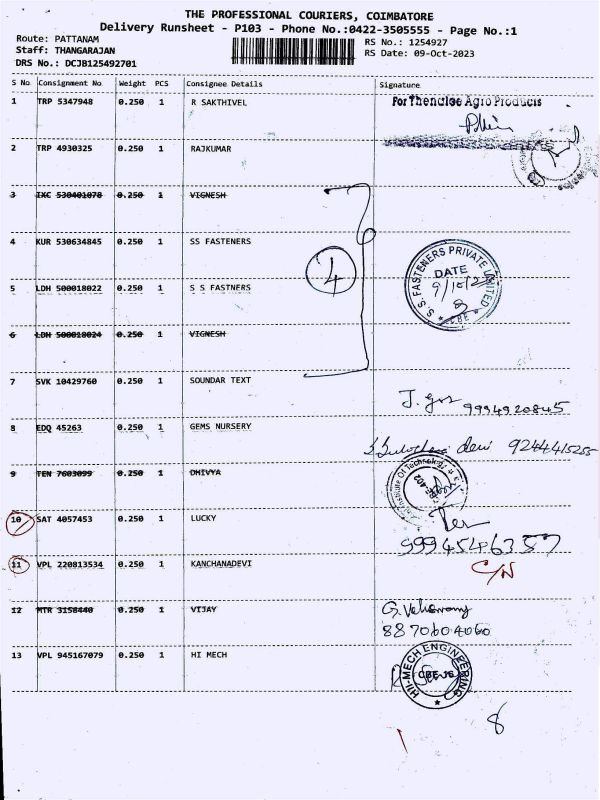 THE PROFESSIONAL COURIERS, COIMBATORE
Delivery Runsheet - P103 - Phone No.:0422-3505555 - Page No.:1
Route: PATTANAM
RS No.: 1254927
Staff: THANGARAJAN
RS Date: 09-Oct-2023
DRS No.: DCJB125492701
S No Consignment No Weight PCS Consignee Details Signature
1 TRP 5347948 0.250 1 R SAKTHIVEL For Thencloe Agro Products
2 TRP 4930325 0.250 1 RAJKUMAR
3 IXC 530401078 0.250 1 VIGNESH
4 KUR 530634845 0.250 1 SS FASTENERS
S.S. FASTENERS PRIVATE LIMITED
DATE
9/10/23
CBE
4
5 LDH 500018022 0.250 1 S S FASTNERS
6 LDH 500018024 0.250 1 VIGNESH
7 SVK 10429760 0.250 1 SOUNDAR TEXT
9994920845
8 EDQ 45263 0.250 1 GEMS NURSERY
9244415255
9 TEN 7603099 0.250 1 DHIVYA
Institute Of Technology
10 SAT 4057453 0.250 1 LUCKY
9994546357
11 VPL 220813534 0.250 1 KANCHANADEVI C/N
12 MTR 3158440 0.250 1 VIJAY
8870604060
13 VPL 945167079 0.250 1 HI MECH
HI-MECH ENGINEERING
8